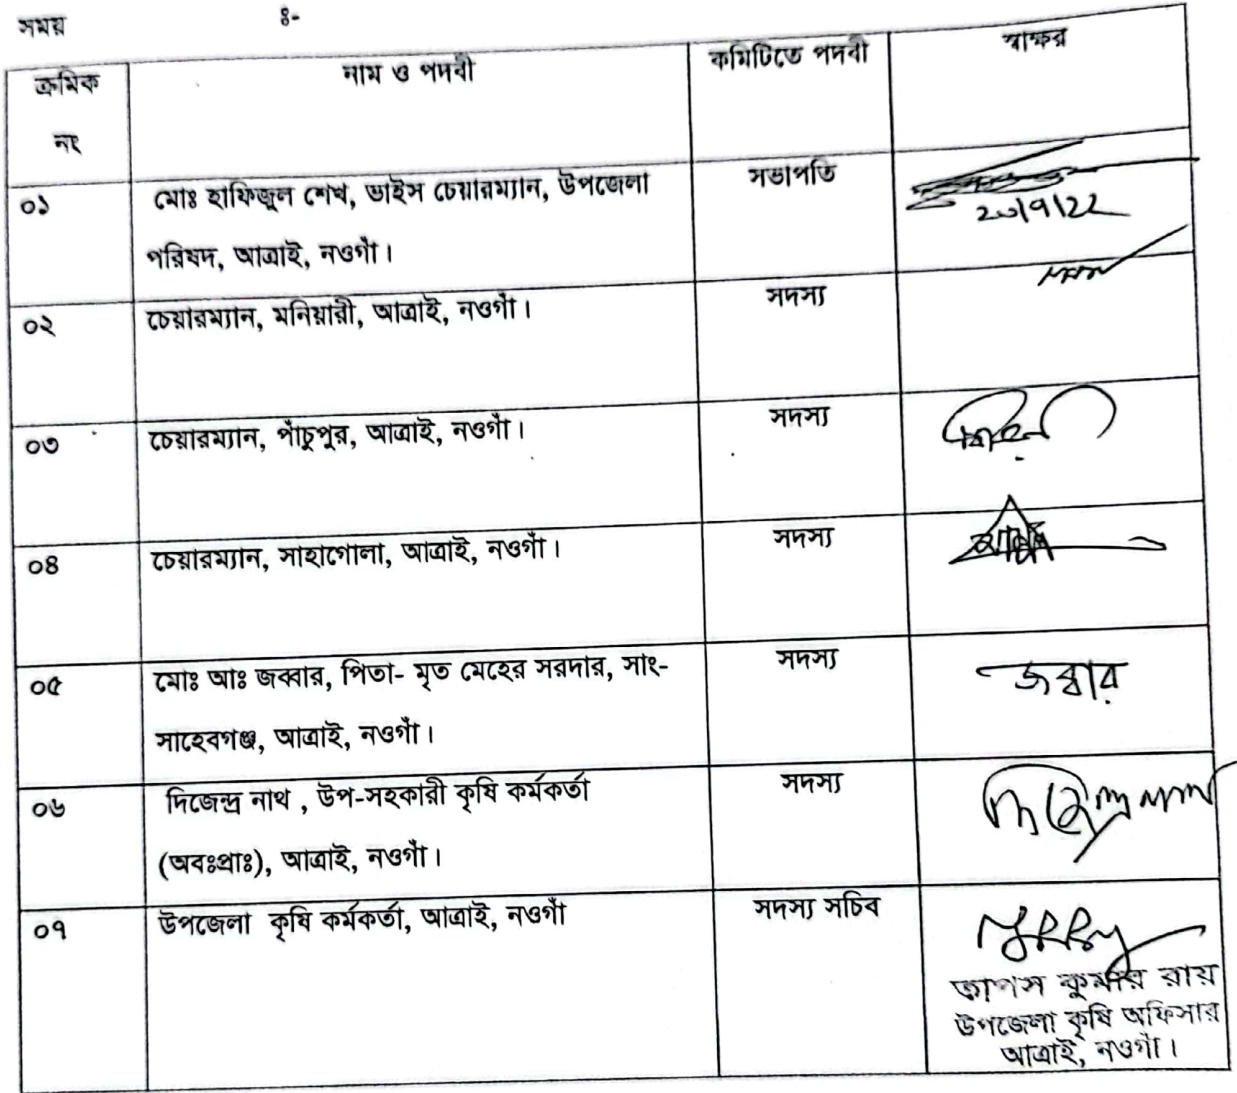 সময় ঃ-
ক্রমিক নং নাম ও পদবী কমিটিতে পদবী স্বাক্ষর
০১ মোঃ হাফিজুল শেখ, ভাইস চেয়ারম্যান, উপজেলা সভাপতি
পরিষদ, আত্রাই, নওগাঁ।
০২ চেয়ারম্যান, মনিয়ারী, আত্রাই, নওগাঁ। সদস্য
০৩ চেয়ারম্যান, পাঁচুপুর, আত্রাই, নওগাঁ। সদস্য
০৪ চেয়ারম্যান, সাহাগোলা, আত্রাই, নওগাঁ। সদস্য
০৫ মোঃ আঃ জব্বার, পিতা- মৃত মেহের সরদার, সাং- সদস্য জব্বার
সাহেবগঞ্জ, আত্রাই, নওগাঁ।
০৬ দিজেন্দ্র নাথ , উপ-সহকারী কৃষি কর্মকর্তা সদস্য
(অবঃপ্রাঃ), আত্রাই, নওগাঁ।
০৭ উপজেলা কৃষি কর্মকর্তা, আত্রাই, নওগাঁ সদস্য সচিব
তাপস কুমার রায়
উপজেলা কৃষি অফিসার
আত্রাই, নওগাঁ।